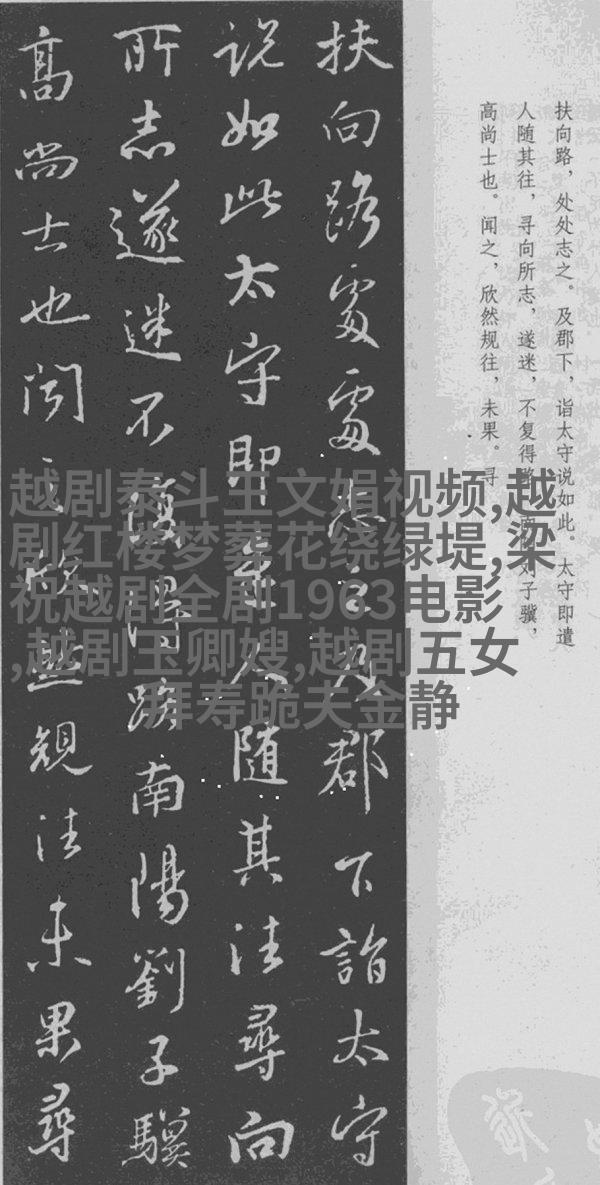 扶向路，处处志之。及郡下，诣太守说如此。太守即遣
人随其往，寻向所志，遂迷，不复得刘子骥，
高尚士也。闻之，欣然规往，未果。寻
扶向路處處志之及郡下詣太守
説如此太守即遣人随其往尋向
所志遂迷不復得路南陽劉子驥
高尚士也闻之欣然規往未果尋
越剧泰斗王文娟视频,越
剧红楼梦葬花绕绿堤,梁
祝越剧全剧1963电影
,越剧玉卿嫂,越剧五女
拜寿跪夫金静